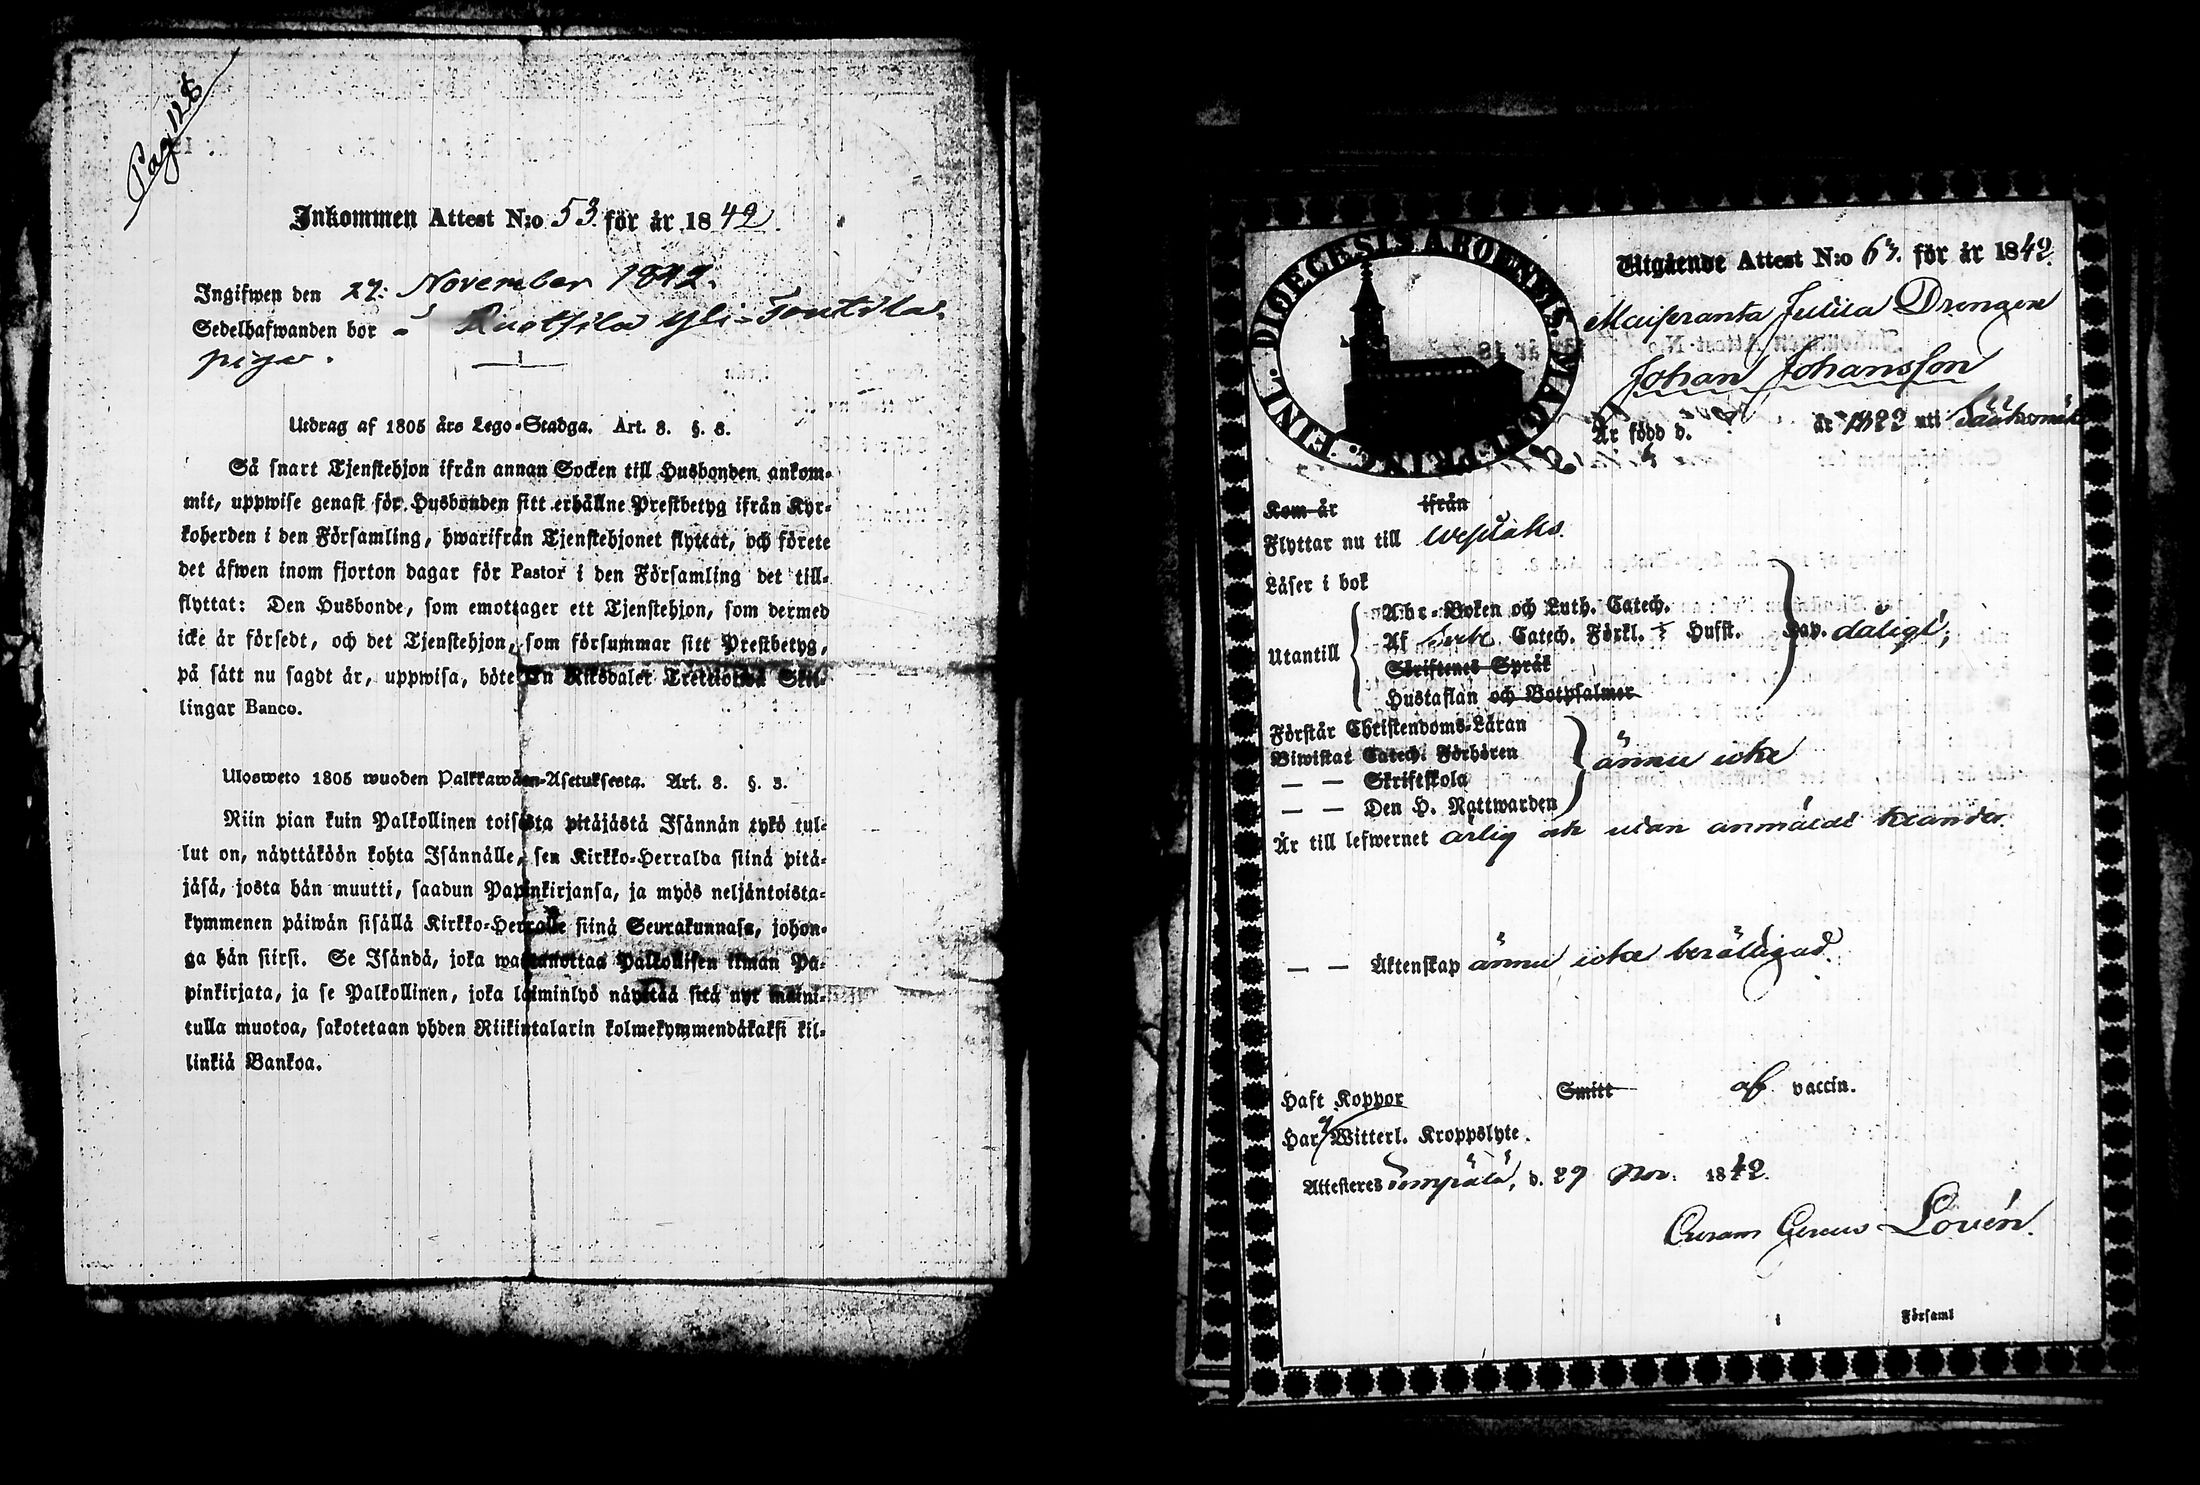 Pag 128
Inkommen Attest N:o 53 för år 1842.
Ingifwen den 29: November 1842.
Sedelhafwanden bor i Ruotsila Yli-Toutila
piga.
Utdrag af 1805 års Lego-Stadga. Art. 3. §. 3.
Så snart Tjenstehjon ifrån annan Socken till Husbonden ankom-
mit, uppwise genast för Husbonden sitt erhållne Prestbetyg ifrån Kyr-
koherden i den Församling, hwarifrån Tjenstehjonet flyttat, och förete
det äfwen inom fjorton dagar för Pastor i den Församling det till-
flyttat: Den Husbonde, som emottager ett Tjenstehjon, som dermed
icke är försedt, och det Tjenstehjon, som försummar sitt Prestbetyg,
på sätt nu sagdt är, uppwisa, böte En Riksdaler Trettiotwå Skil-
lingar Banco.
Ulosweto 1805 wuoden Palkkawäen-Asetuksesta. Art. 3. §. 3.
Niin pian kuin Palkollinen toisesta pitäjästä Isännän tykö tul-
lut on, näyttäköön kohta Isännälle, sen Kirkko-Herralda siinä pitä-
jäsä, josta hän muutti, saadun Papinkirjansa, ja myös neljäntoista-
kymmenen päiwän sisällä Kirkko-Herralle siinä Seurakunnasa, johon-
ga hän siirsi. Se Isändä, joka wastanottaa Palkollisen ilman Pa-
pinkirjata, ja se Palkollinen, joka laiminlyö näyttää sitä nyt maini-
tulla muotoa, sakotetaan yhden Riikintalarin kolmekymmendäkaksi kil-
linkiä Bankoa.
DIOECESIS ABOENSIS. MAGNI PRINC: FINL.
Utgående Attest N:o 63. för år 1842.
Drengen
Johan Johansson
Är född d. år 1822 uti Sääksmäki
Kom år ifrån
Flyttar nu till Wesilaks.
Läser i bok
Utantill
Abc-Boken och Luth. Catech.
Af Catech. Förkl. Husst. Kap. dåligt;
Skriftenes Språk
Hustaflan och Botpsalmer
Förstår Christendoms-Läran
Biwistat Catech. Förhören ännu icke
— — Skriftskola
— — Den H. Nattwarden
Är till lefwernet ärlig och utan anmäldt klander.
— — Äktenskap ännu icke berättigad.
Haft Koppor Smitt af vaccin.
Har ej Witterl. Kroppslyte.
Attesteres Lempälä, d. 29 Nov. 1842.
Lovén.
i Församl